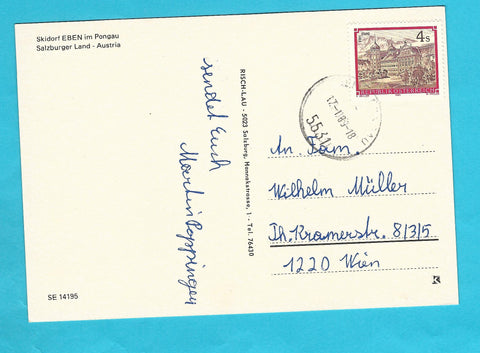 Skidorf EBEN im Pongau
Salzburger Land - Austria
sendet Euch
Martin Poppinger
RISCH-LAU - 5023 Salzburg, Hannakstrasse, 1 - Tel. 76430
4s
REPUBLIK ÖSTERREICH
5531
An Fam.
Wilhelm Müller
Th. Kramerstr. 8/3/5
1220 Wien
SE 14195